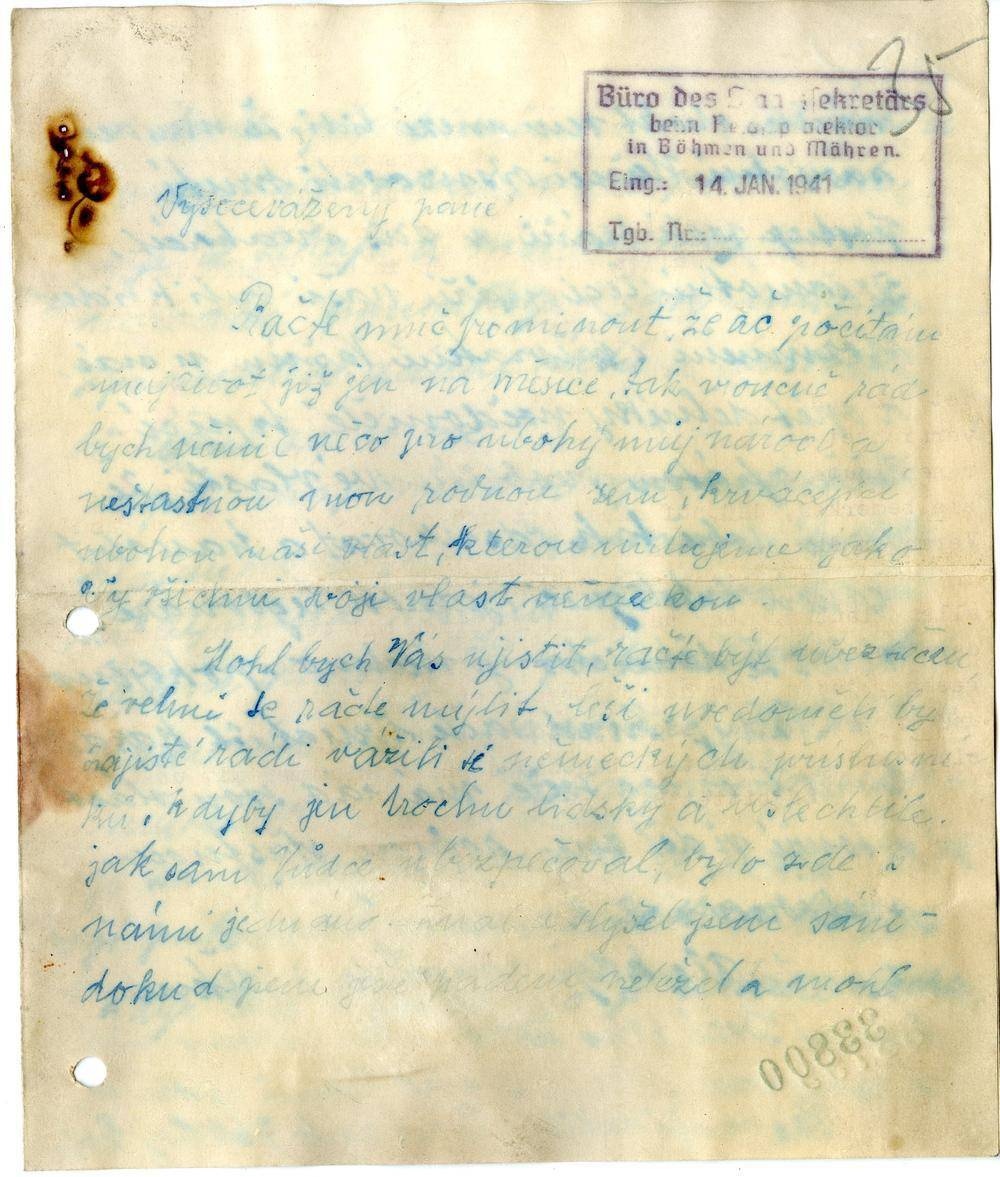 35
Büro des Staatssekretärs
beim Reichsprotektor
in Böhmen und Mähren.
Eing.: 14. JAN. 1941
Tgb. Nr.:
Vysocevážený pane
Račte mně prominout, že ač počítám
můj život již jen na měsíce, tak vroucně rád
bych učinil něco pro ubohý můj národ a
nešťastnou mou rodnou zem, krvácející
ubohou naší vlast, kterou milujeme jako
Vy všichni svoji vlast německou.
Mohl bych Vás ujistit, račte být
že velmi se ráčte mýlit, češi uvědomělí by
zajisté rádi vážili si německých příslušní-
ků, kdyby jen trochu lidsky a ušlechtile.
jak sám Vůdce ubezpečoval, bylo zde s
námi jednáno slyšel jsem sám -
dokud jsem neležel a mohl
00833